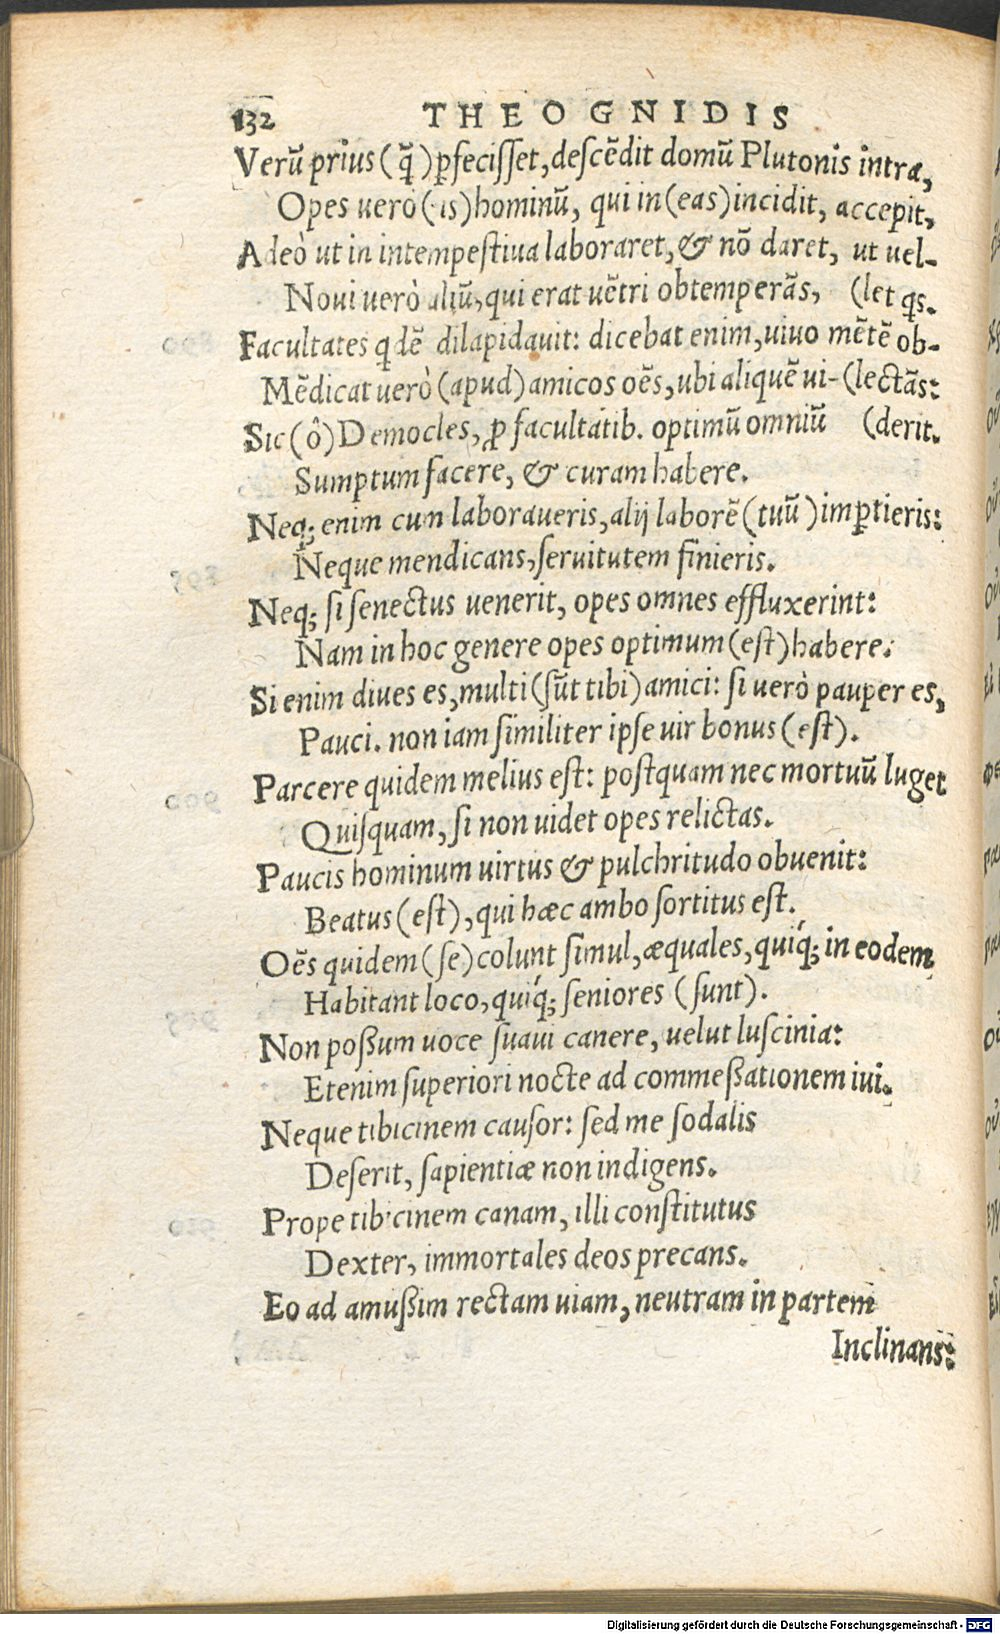 132 THEOGNIDIS
Verũ prius (q̃) ꝑfeciſſet, deſcẽdit domũ Plutonis intra,
Opes uerò (is) hominũ, qui in (eas) incidit, accepit,
Adeò ut in intempeſtiua laboraret, & nõ daret, ut uel-
Noui uerò aliũ, qui erat uẽtri obtemperãs, (let qs.
Facultates qdẽ dilapidauit: dicebat enim, uiuo mẽtẽ ob-
Mẽdicat uerò (apud) amicos oẽs, ubi aliquẽ ui- (lectãs:
Sic (ô) Democles, ꝓ facultatib. optimũ omniũ (derit.
Sumptum facere, & curam habere.
Neq; enim cum laboraueris, alij laborẽ (tuũ) imꝑtieris:
Neque mendicans, ſeruitutem finieris.
Neq; ſi ſenectus uenerit, opes omnes effluxerint:
Nam in hoc genere opes optimum (eſt) habere.
Si enim diues es, multi (ſũt tibi) amici: ſi uerò pauper es,
Pauci. non iam ſimiliter ipſe uir bonus (eſt).
Parcere quidem melius eſt: poſtquam nec mortuũ luget
Quiſquam, ſi non uidet opes relictas.
Paucis hominum uirtus & pulchritudo obuenit:
Beatus (eſt), qui hæc ambo ſortitus eſt.
Oẽs quidem (ſe) colunt ſimul, æquales, quiq́; in eodem
Habitant loco, quiq́; ſeniores (ſunt).
Non poßum uoce ſuaui canere, uelut luſcinia:
Etenim ſuperiori nocte ad commeßationem iui.
Neque tibicinem cauſor: ſed me ſodalis
Deſerit, ſapientiæ non indigens.
Prope tibicinem canam, illi conſtitutus
Dexter, immortales deos precans.
Eo ad amußim rectam uiam, neutram in partem
Inclinans:
Digitalisierung gefördert durch die Deutsche Forschungsgemeinschaft - DFG